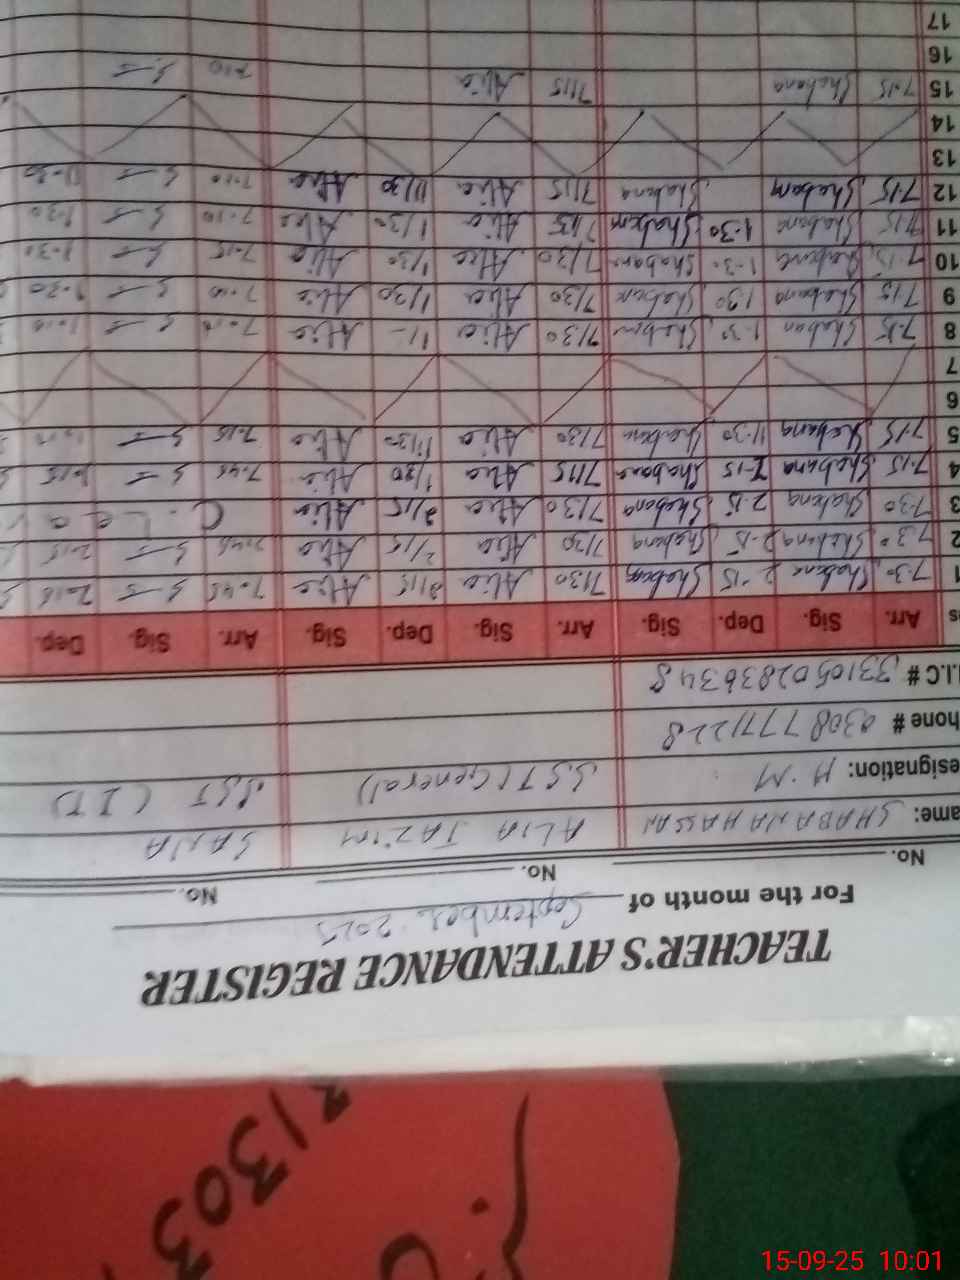 TEACHER'S ATTENDANCE REGISTER
For the month of September 2025
No. No. No.
ame: SHABANA HASSAN ALIA TAZIM SANA
esignation: H.M S.ST (General) S.ST (IT)
hone # 0308 7771228
.I.C # 3310502836348
es Arr. Sig. Dep. Sig. Arr. Sig. Dep. Sig. Arr. Sig. Dep.
1 7.30 Shabana 2.15 Shabana 7/30 Alia 2/15 Alia 7.45 2.15
2 7.30 Shabana 2.15 Shabana 7/30 Alia 2/15 Alia 7.45 2.15
3 7.30 Shabana 2.15 Shabana 7/30 Alia 2/15 Alia C. Leav
4 7.15 Shabana Shabana 7/15 Alia 1/30 Alia 7.45
5 7.15 Shabana 11.30 Shabana 7/30 Alia 11/30 Alia 7.15
6
7
8 7.15 Shaban 1.30 Shabana 7/30 Alia Alia 7.10
9 7.15 Shabana 1.30 Shabana 7/30 Alia 1/30 Alia 7.10 1.30
10 7.15 Shabana 1.30 Shabana 7/30 Alia 1/30 Alia 7.15 1.30
11 7.15 Shabana 1.30 Shabana 7/15 Alia 1/30 Alia 7.10 1.30
12 7.15 Shabana Shabana 7/15 Alia 11/30 Alia 7.10 11.30
13
14
15 7.15 Shabana 7/15 Alia 7.10
16
17
31303
15-09-25 10:01